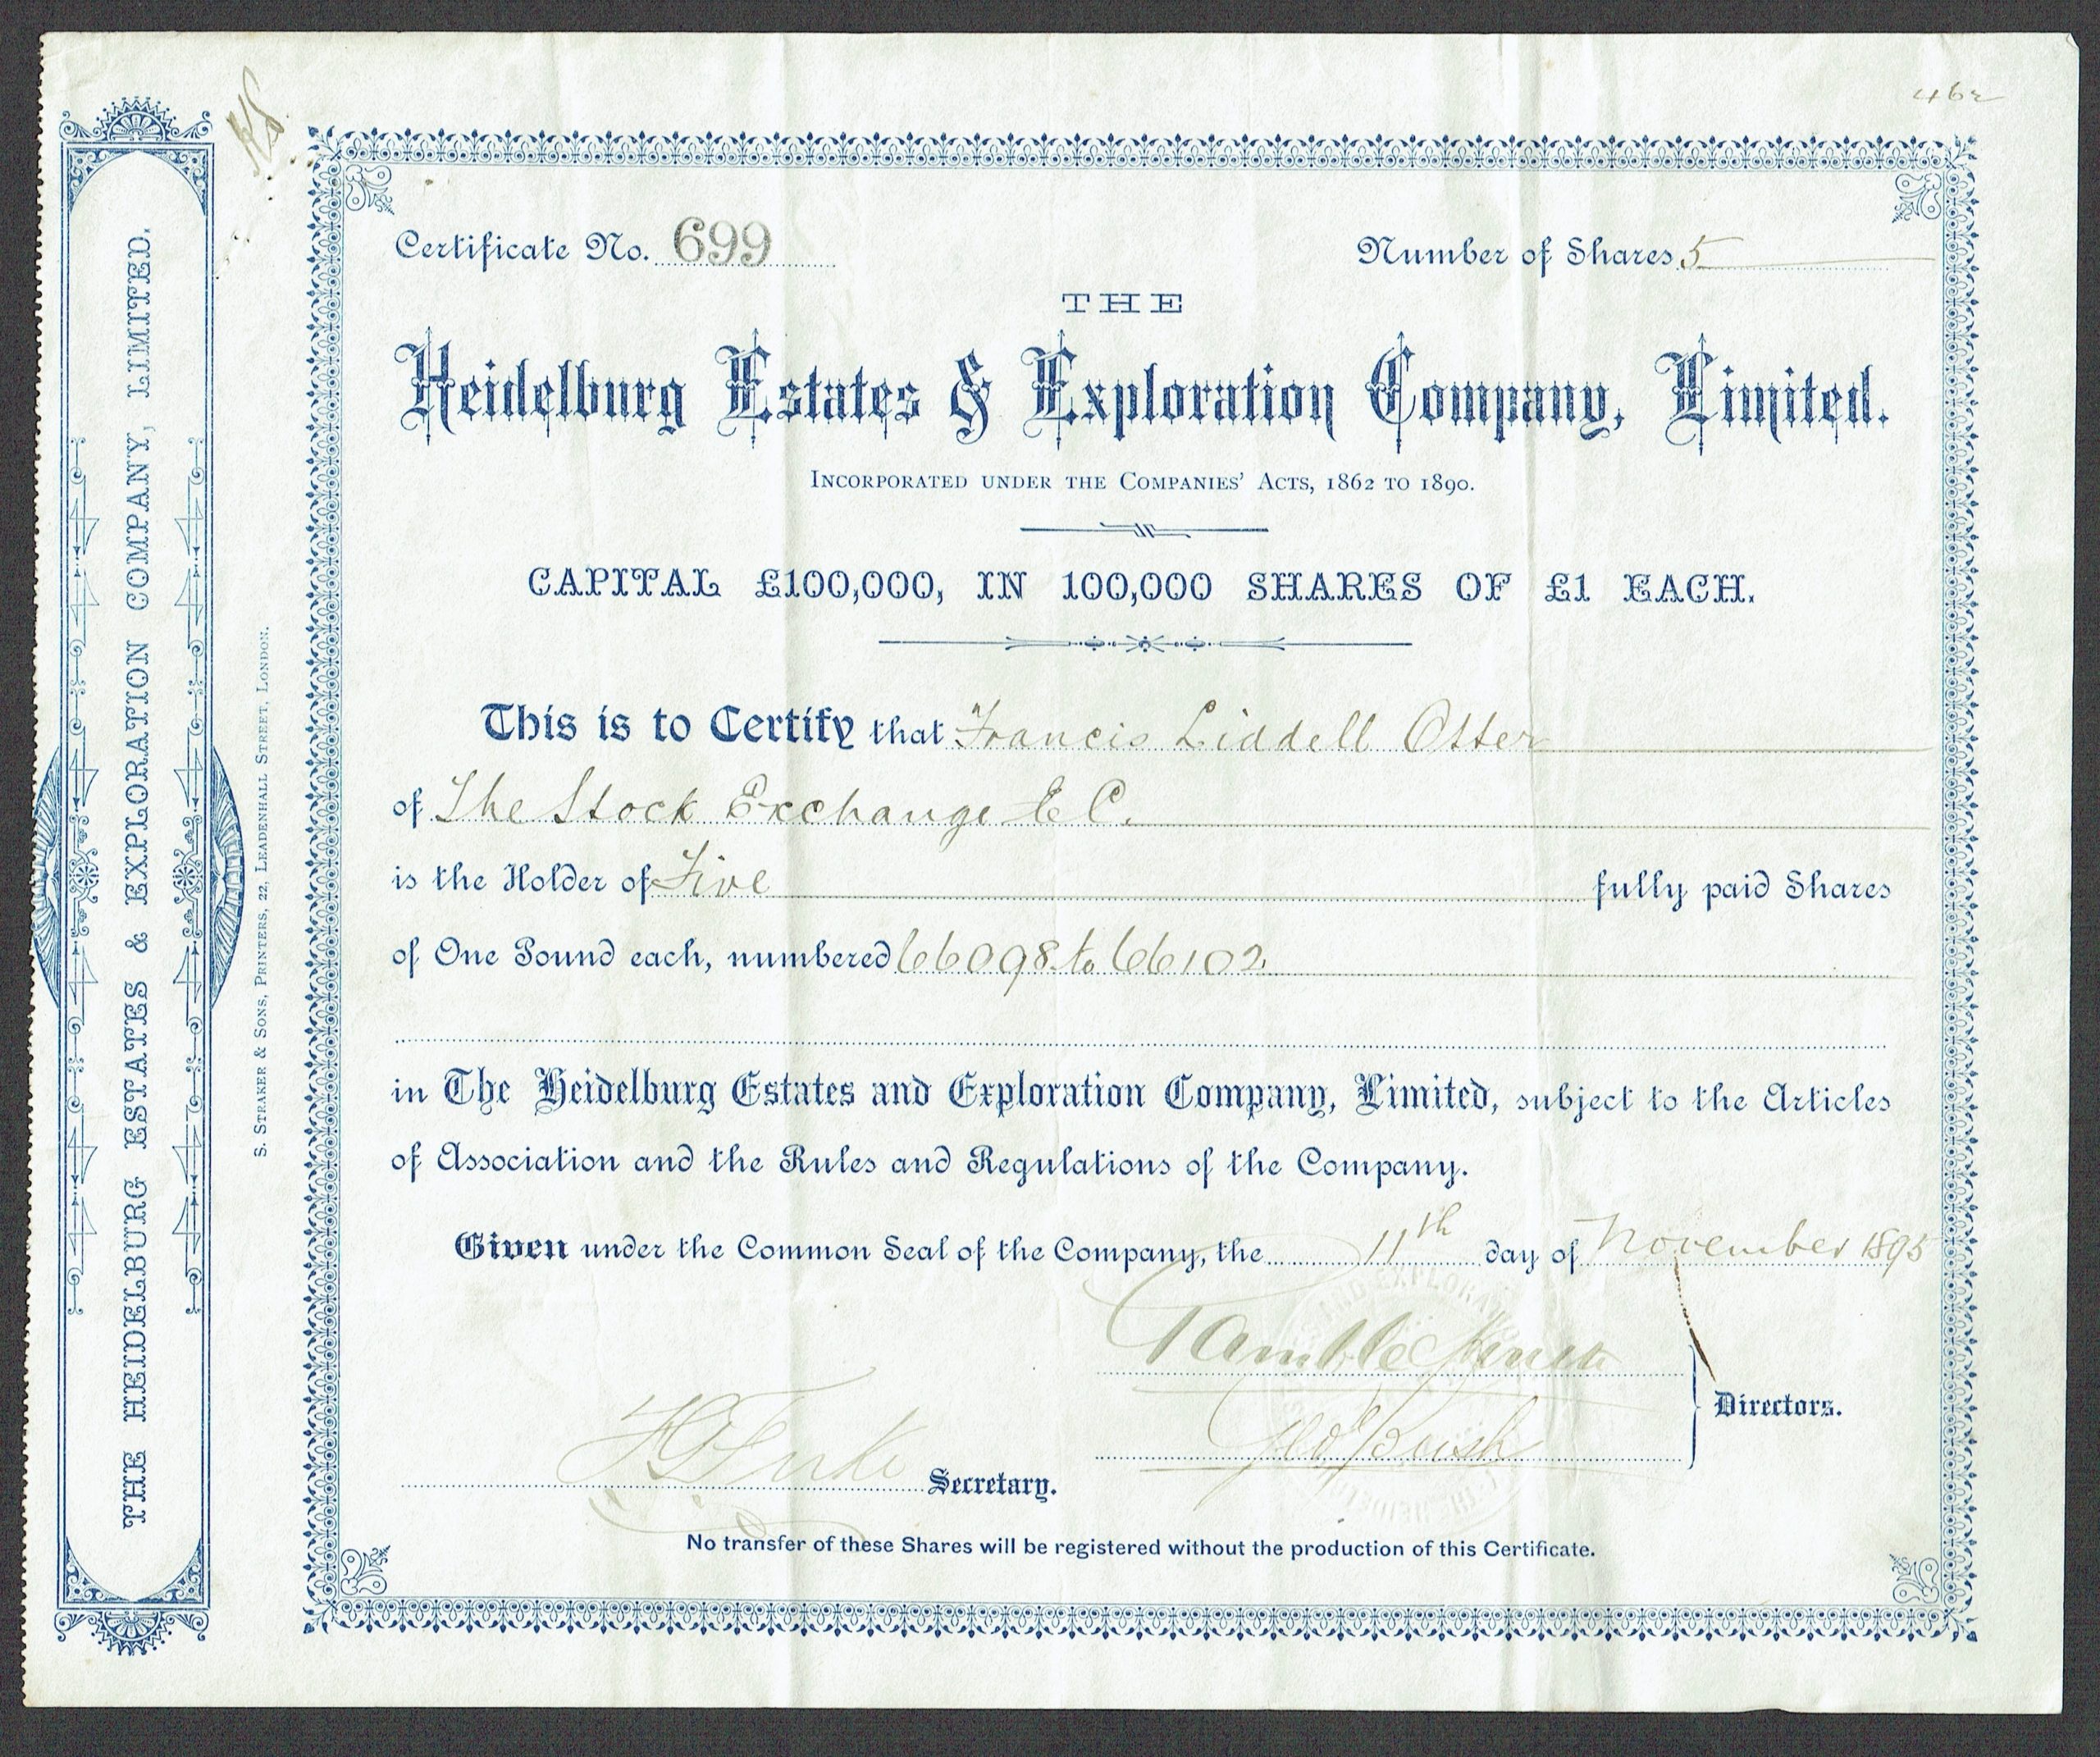 462
Certificate No. 699
Number of Shares 5
THE
Heidelburg Estates & Exploration Company, Limited.
INCORPORATED UNDER THE COMPANIES' ACTS, 1862 TO 1890.
CAPITAL £100,000, IN 100,000 SHARES OF £1 EACH.
This is to Certify that Francis Liddell Otter
of The Stock Exchange E C.
is the Holder of Five fully paid Shares
of One Pound each, numbered 66098 to 66102
in The Heidelburg Estates and Exploration Company, Limited, subject to the Articles
of Association and the Rules and Regulations of the Company.
Given under the Common Seal of the Company, the 11th day of November 1895
Directors.
Secretary.
No transfer of these Shares will be registered without the production of this Certificate.
THE HEIDELBURG ESTATES & EXPLORATION COMPANY, LIMITED.
S. STRAKER & SONS, PRINTERS, 22, LEADENHALL STREET, LONDON.